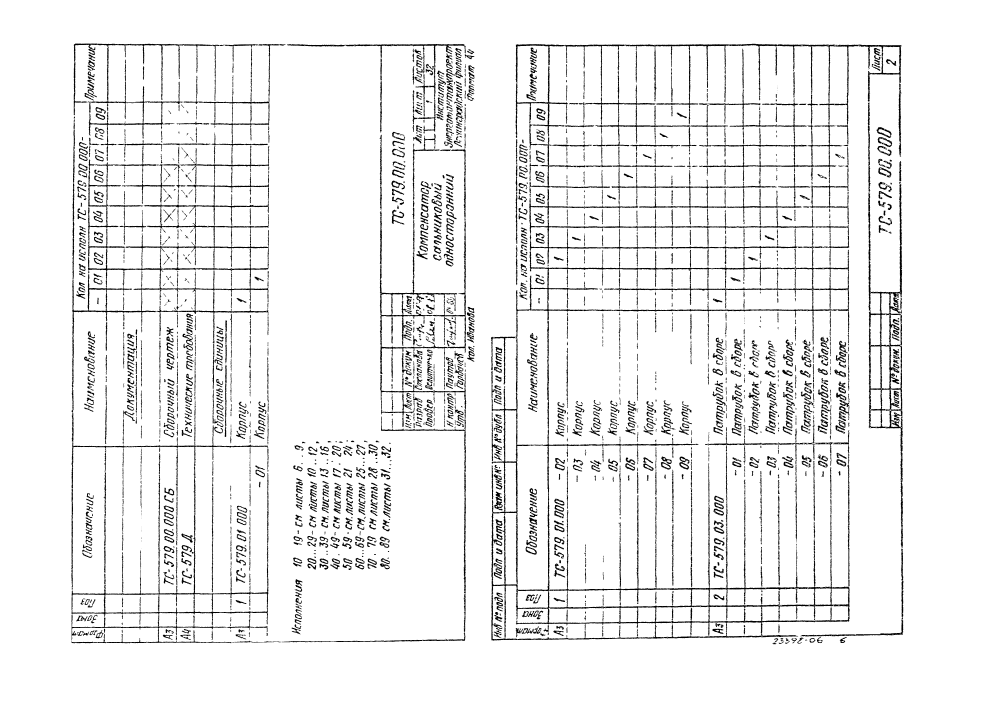 Формат
Зона
Поз
Обозначение
Наименование
Кол. на исполн ТС-579.00.000-
- 01 02 03 04 05 06 07 08 09
Примечание
Документация
А3 ТС-579.00.000 СБ Сборочный чертеж
А4 ТС-579 Д Технические требования
Сборочные единицы
А3 1 ТС-579.01 000 Корпус 1
- 01 Корпус 1
Исполнения 10 19- см листы 6 . . 9,
20...29- см листы 10 ..12,
30...39- см.листы 13 .. 16,
40 . 49- см листы 17 . 20;
50 . 59- см.листы 21 24;
60...69-см.листы 25...27;
70 . 79 см листы 28 ...30,
80..89 см.листы 31...32.
ТС-579.00.000
Изм Лист № докум Подп. Дата
Разраб Степанова
Провер
Н контр
Утв
Компенсатор
сальниковый
односторонний
Лит Лист Листов
1 32
Институт
Энергомонтажпроект
Ленинградский филиал
Кол. Иванова
Формат А4
Инв № подл Подп и дата Взам инв № Инв № дубл Подп и дата
Формат
Зона
Поз
Обозначение
Наименование
Кол. на исполн ТС-579.00.000-
- 01 02 03 04 05 06 07 08 09
Примечание
А3 1 ТС-579.01.000 - 02 Корпус 1
- 03 Корпус 1
- 04 Корпус 1
- 05 Корпус 1
- 06 Корпус 1
- 07 Корпус 1
- 08 Корпус 1
- 09 Корпус 1
А3 2 ТС-579.03.000 Патрубок в сборе 1
- 01 Патрубок в сборе 1
- 02 Патрубок в сборе 1
- 03 Патрубок в сборе 1
- 04 Патрубок в сборе 1
- 05 Патрубок в сборе 1
- 06 Патрубок в сборе 1
- 07 Патрубок в сборе 1
Изм Лист № докум. Подп. Дата
ТС-579.00.000
Лист
2
23398-06 6